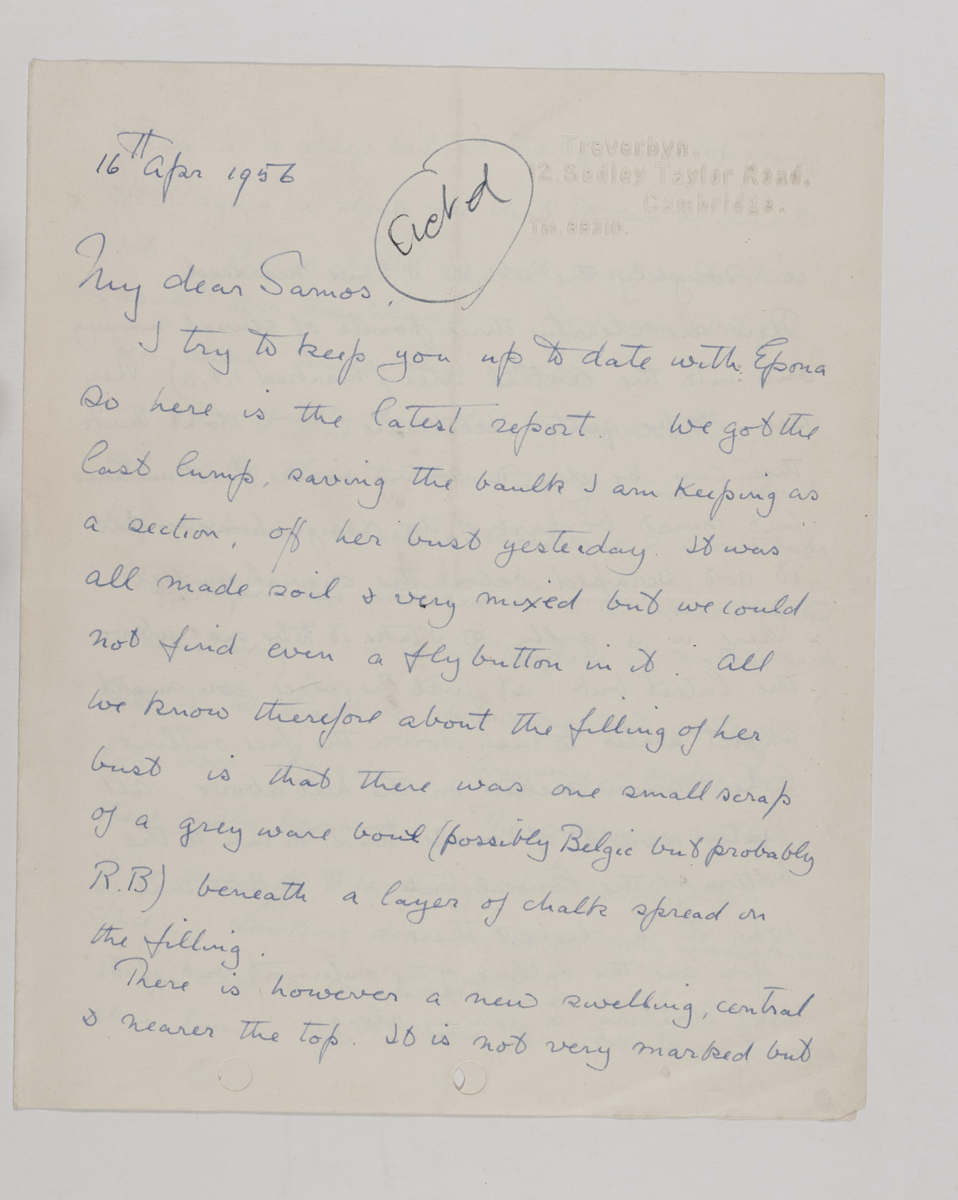 16TH Apr 1956
Actd
Treverbyn.
12. Sedley Taylor Road,
Cambridge.
My dear Samos,
I try to keep you up to date with Epona
so here is the latest report. We got the
last lump, saving the baulk I am keeping as
a section, off her bust yesterday. It was
all made soil & very mixed but we could
not find even a fly button in it. All
we know therefore about the filling of her
bust is that there was one small scrap
of a grey ware bowl (possibly Belgic but probably
R.B) beneath a layer of chalk spread on
the filling.
There is however a new swelling, central
& nearer the top. It is not very marked but